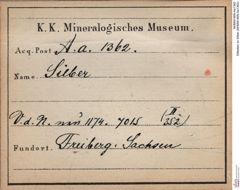 K. K. Mineralogisches Museum.
Acq. Post A. a. 1362.
Name Silber
V. d. N. 1174. 7015 (II/352)
Fundort. Freiberg. Sachsen